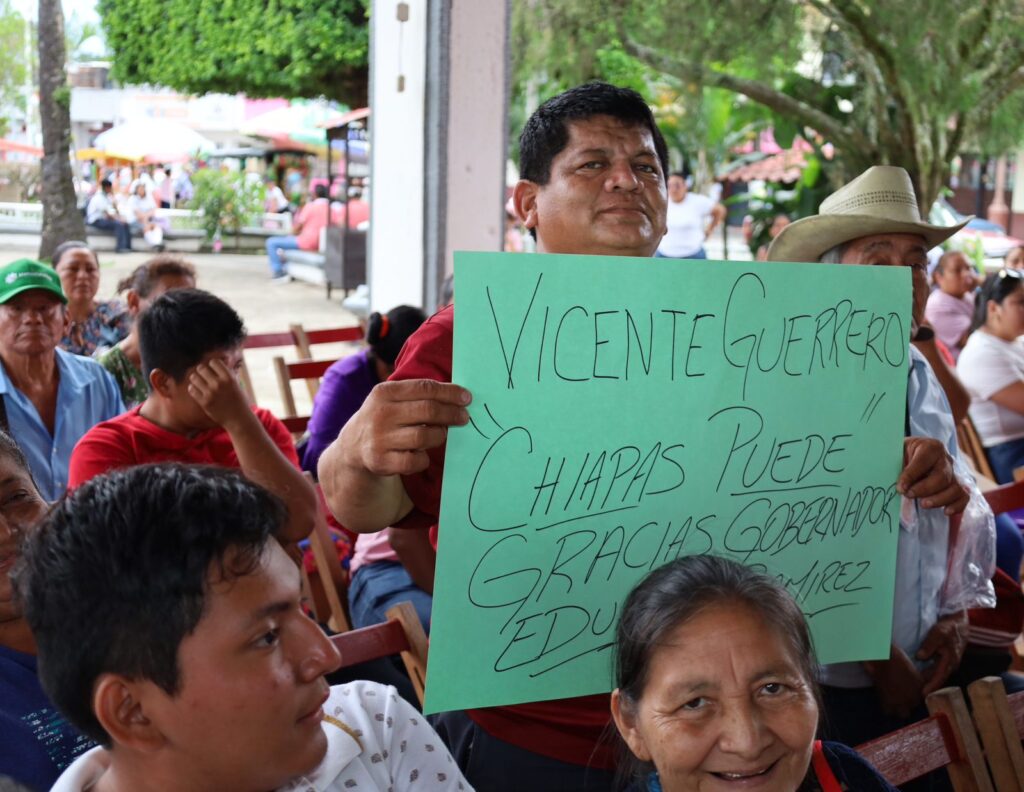 VICENTE GUERRERO
"CHIAPAS PUEDE"
GRACIAS GOBERNADOR